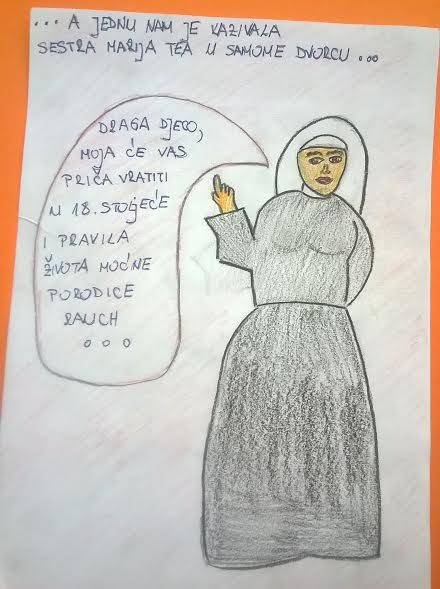 ... A JEDNU NAM JE KAZIVALA
SESTRA MARIJA TEA U SAMOME DVORCU ...
DRAGA DJECO,
MOJA ĆE VAS
PRIČA VRATITI
U 18. STOLJEĆE
I PRAVILA
ŽIVOTA MOĆNE
PORODICE
RAUCH
...